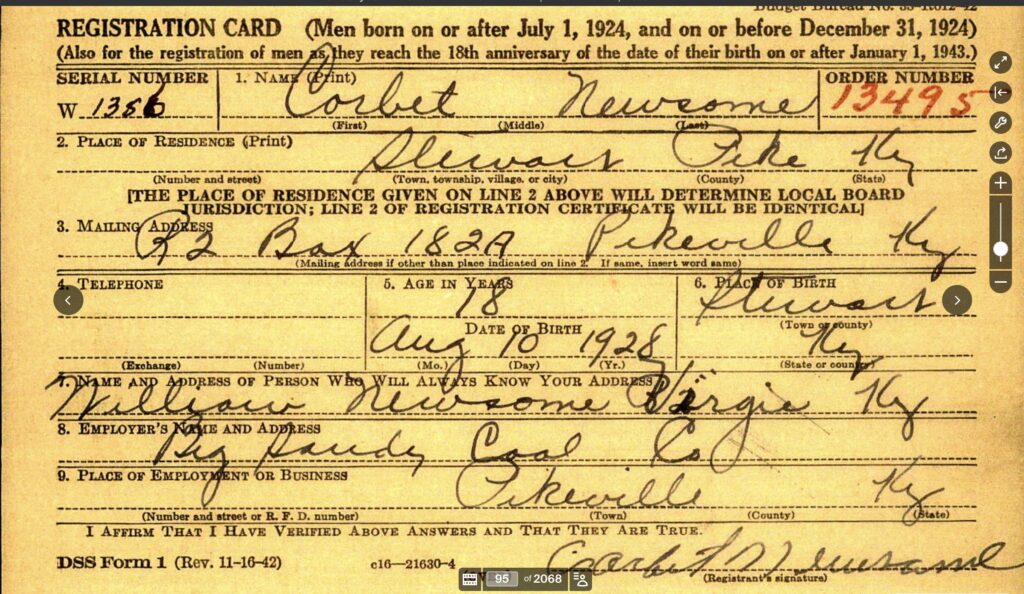 Budget Bureau No. 33-R012-42
REGISTRATION CARD (Men born on or after July 1, 1924, and on or before December 31, 1924)
(Also for the registration of men as they reach the 18th anniversary of the date of their birth on or after January 1, 1943.)
SERIAL NUMBER 1. NAME (Print) ORDER NUMBER
W 1356 Corbet Newsome 13495
(First) (Middle) (Last)
2. PLACE OF RESIDENCE (Print)
Stewart Pike Ky
(Number and street) (Town, township, village, or city) (County) (State)
[THE PLACE OF RESIDENCE GIVEN ON LINE 2 ABOVE WILL DETERMINE LOCAL BOARD
JURISDICTION; LINE 2 OF REGISTRATION CERTIFICATE WILL BE IDENTICAL]
3. MAILING ADDRESS
R2 Box 182A Pikeville Ky
(Mailing address if other than place indicated on line 2. If same, insert word same)
4. TELEPHONE 5. AGE IN YEARS 6. PLACE OF BIRTH
18 Stewart
DATE OF BIRTH (Town or county)
Aug 10 1928 Ky
(Exchange) (Number) (Mo.) (Day) (Yr.) (State or country)
7. NAME AND ADDRESS OF PERSON WHO WILL ALWAYS KNOW YOUR ADDRESS
William Newsome Virgie Ky
8. EMPLOYER'S NAME AND ADDRESS
Big Sandy Coal Co
9. PLACE OF EMPLOYMENT OR BUSINESS
Pikeville Ky
(Number and street or R. F. D. number) (Town) (County) (State)
I AFFIRM THAT I HAVE VERIFIED ABOVE ANSWERS AND THAT THEY ARE TRUE.
DSS Form 1 (Rev. 11-16-42) c16—21630-4 Corbet Newsome
(Registrant's signature)
95 of 2068